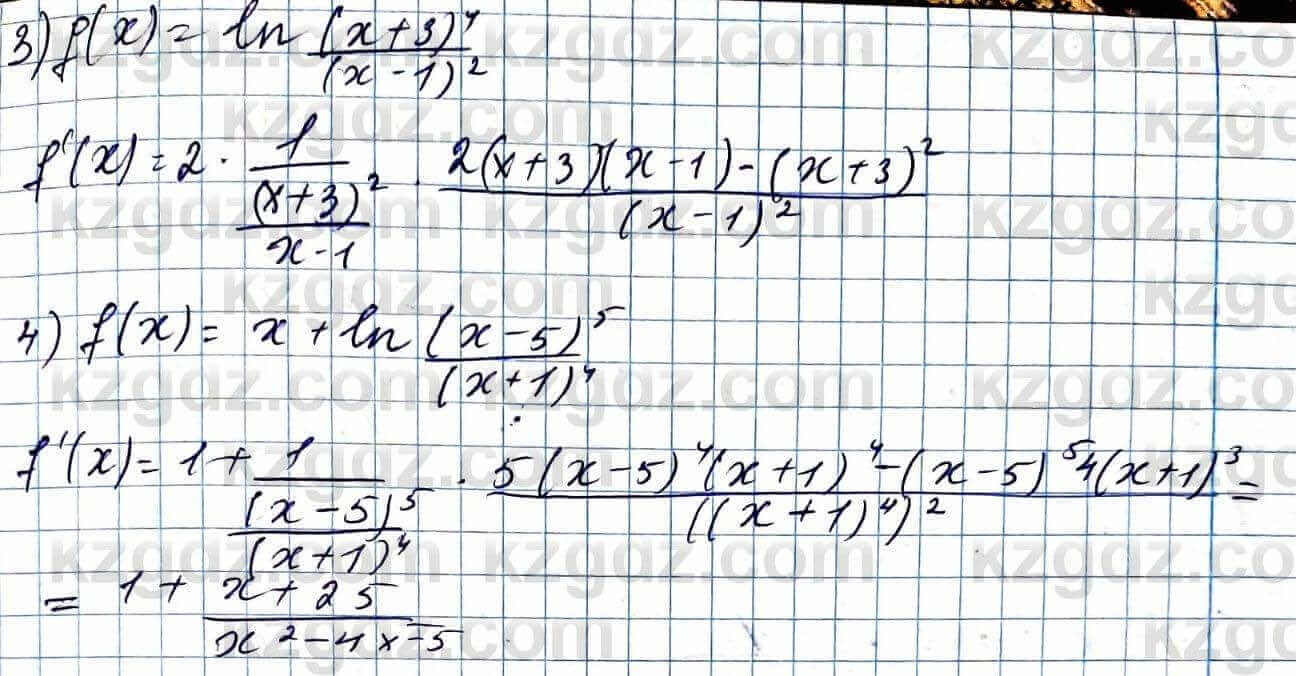 3) f(x) = ln (x+3)⁴/(x-1)²
f'(x) = 2 · 1/((x+3)²/(x-1)) · (2(x+3)(x-1)-(x+3)²)/(x-1)²
4) f(x) = x + ln (x-5)⁵/(x+1)⁴
f'(x) = 1 + 1/((x-5)⁵/(x+1)⁴) · (5(x-5)⁴(x+1)⁴-(x-5)⁵4(x+1)³)/((x+1)⁴)² =
= 1 + (x+25)/(x²-4x-5)
kzgdz.com